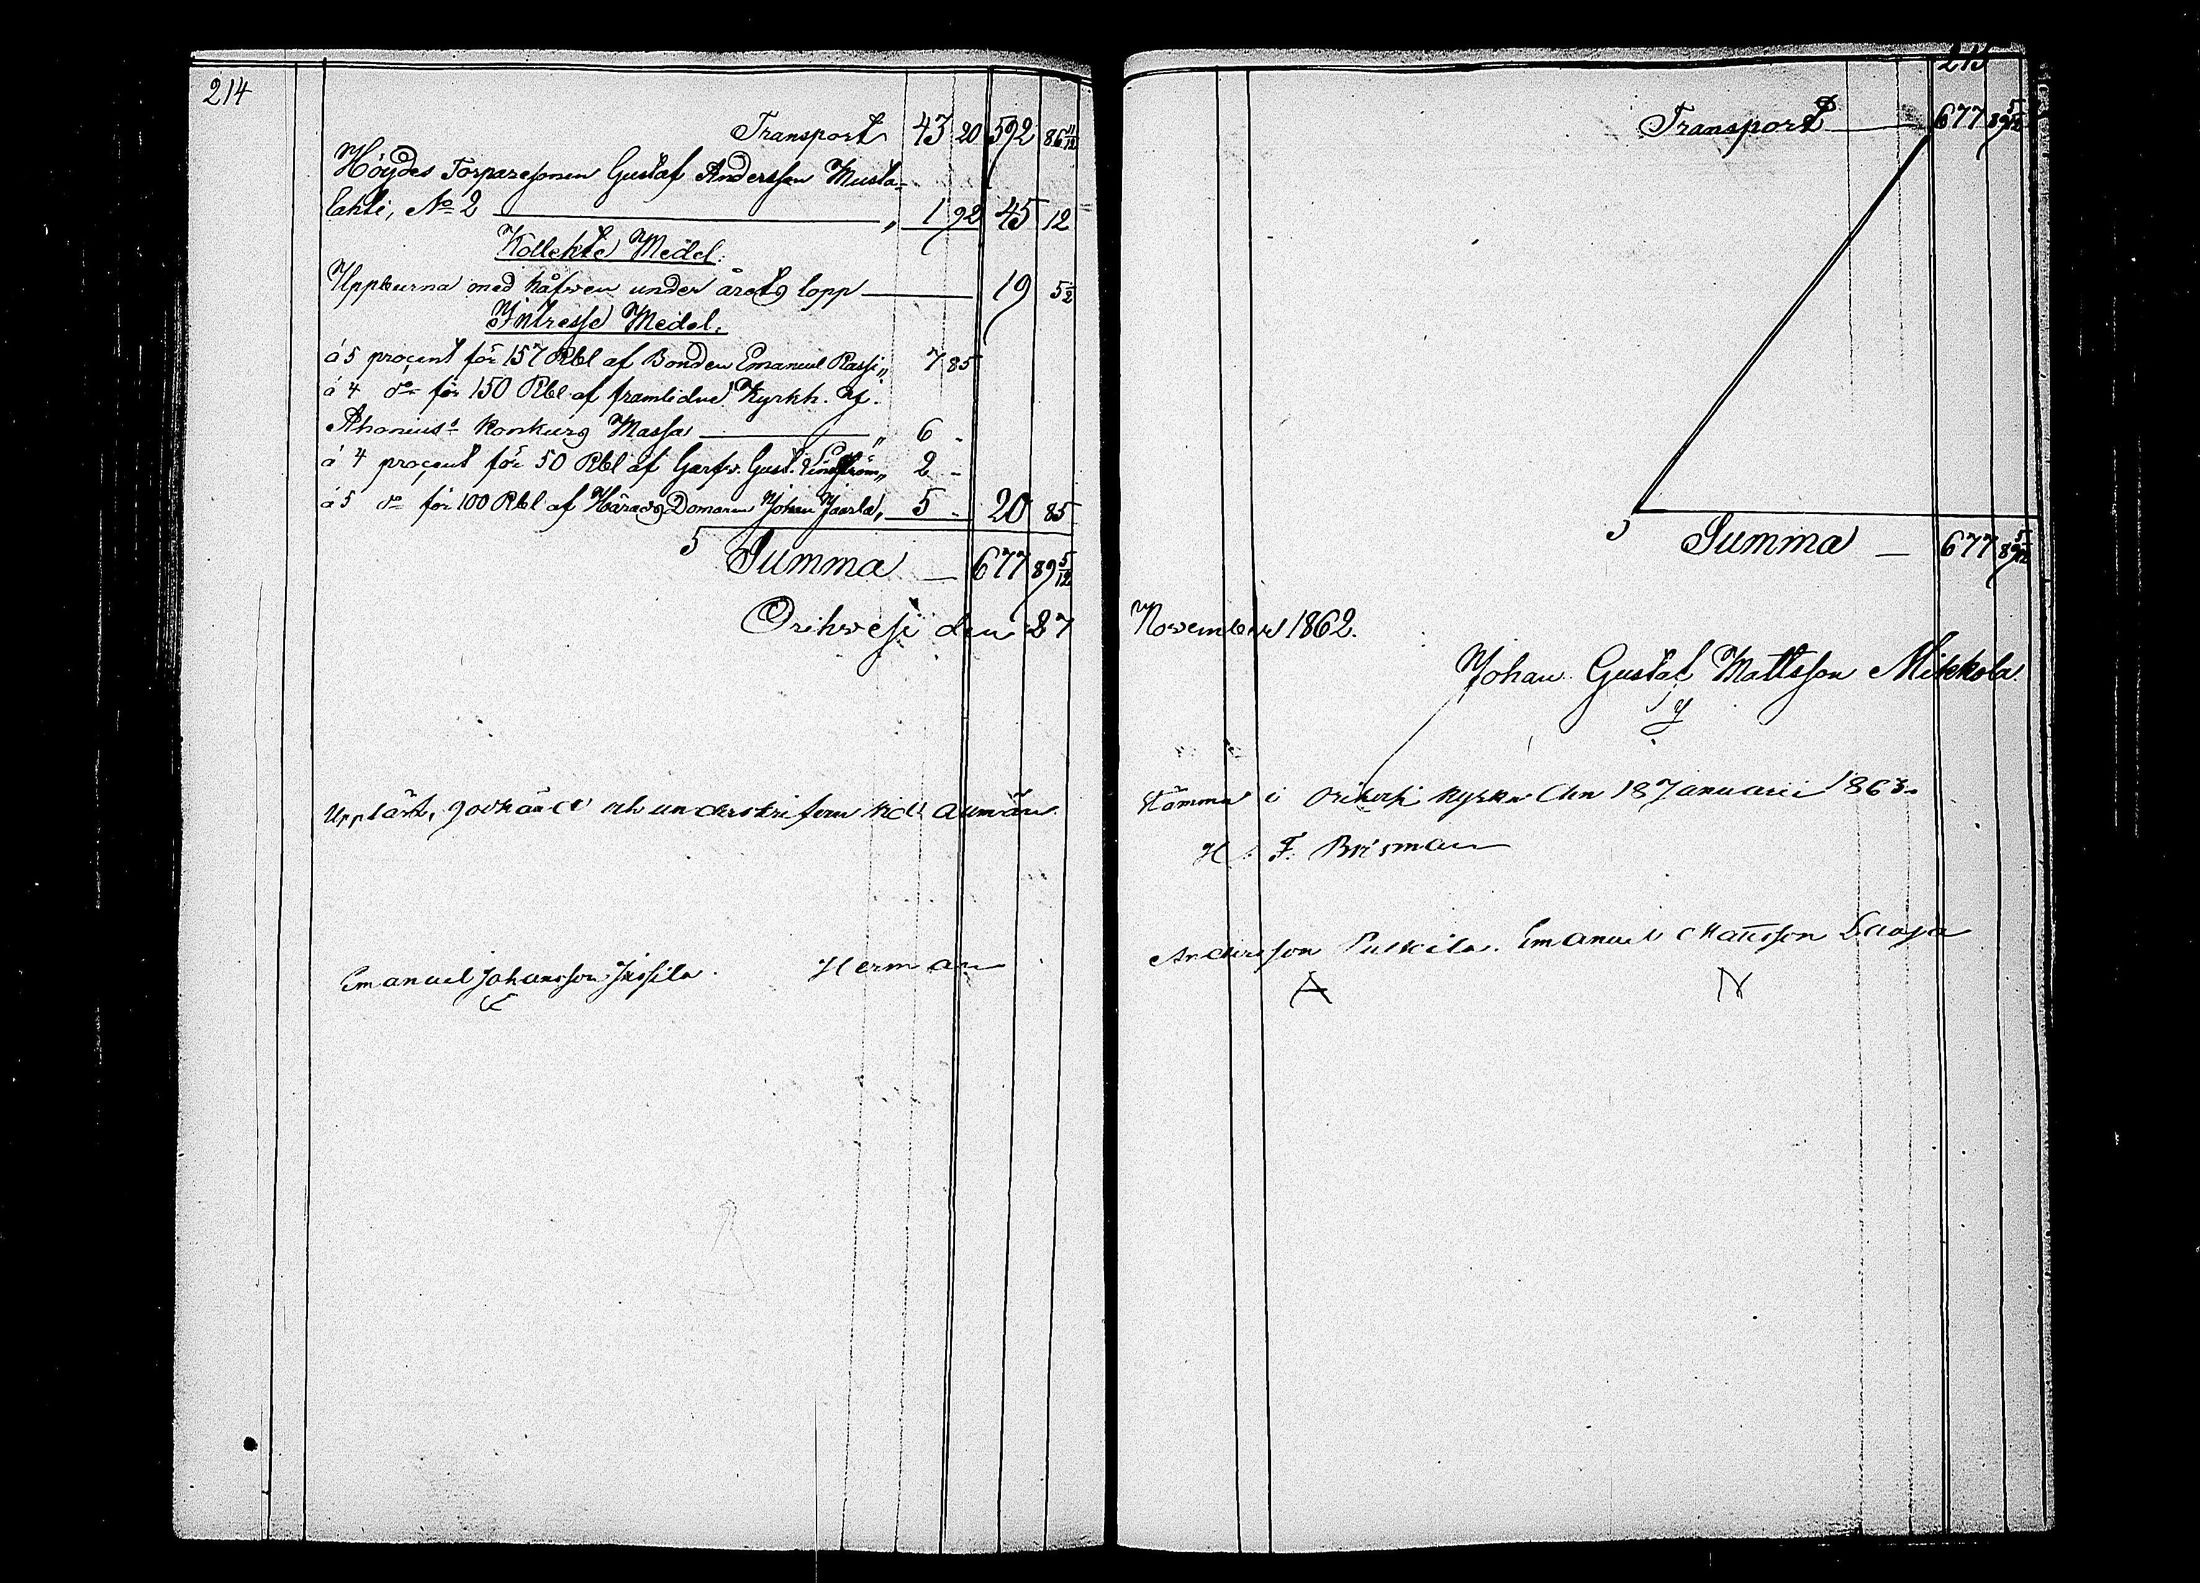 214
Transport 43 20 592 86 11/12
Höijdes Torparesonen Gustaf Andersson Musta-
lahti, No 2 " 1 92 45 12
Kollekte Medel:
Uppburna med håfwen under årets lopp 19 5 1/2
Intresse Medel.
á 5 procent för 157 Rbl af Bonden Emanuel Rassi " 7 85
á 4 do för 150 Rbl af framlidne Kyrkh. Hj.
Ahonius's Konkurs Massa " 6 -
á 4 procent för 50 Rbl af Garfv. Gust. Lindström " 2 -
á 5 do för 100 Rbl af Härads Domaren Johan Jaarla, 5 - 20 85
Summa 677 89 5/12
Orihvesi den 27
Uppläst, godkänd och underskrifven vid allmän
Emanuel Johansson Jussila. Herman
215
Transport 677 89 5/12
Summa 677 89 5/12
November 1862.
Johan Gustaf Mattsson Mikkola
Stämma i Orihvesi kyrka den 18 Januarii 1863.
H. F. Brisman
Andersson Pukkila. Emanuel Mattsson Laasa
A N